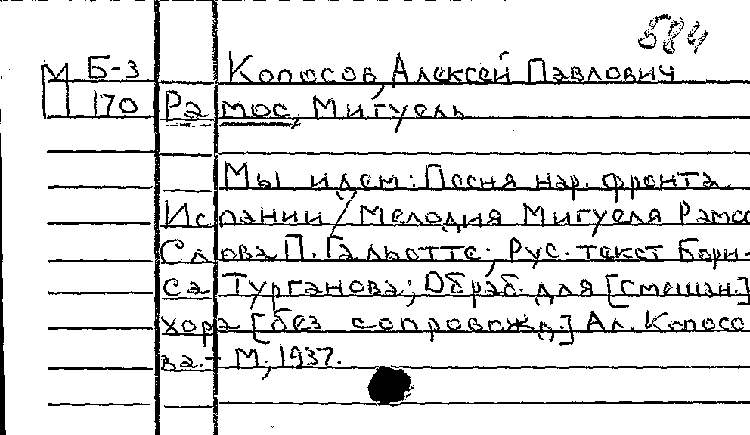 584
М Б-3 Копосов, Алексей Павлович
170 Рамос, Мигуель
Мы идем: Песня нар. фронта
Испании / Мелодия Мигуеля Рамо
Слова П. Гальотте; Рус. текст Бори-
са Турганова; Обраб. для [смешан.]
хора [без сопровожд.] Ал. Копосо
ва. - М., 1937.